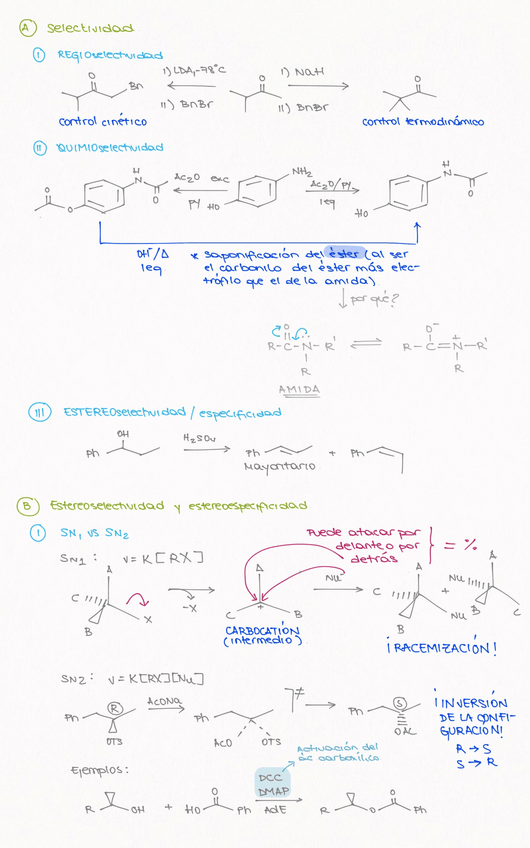 A Selectividad
I REGIOselectividad
O
Bn
I) LDA, -78°C
II) BnBr
O
I) NaH
II) BnBr
O
control cinético
control termodinámico
II QUIMIOselectividad
O
O
H
N
O
Ac2O exc
PY
HO
NH2
Ac2O/PY
1eq
HO
H
N
O
OH-/Δ
1eq
* saponificación del éster (al ser
el carbonilo del éster más elec-
trófilo que el de la amida)
↓ por qué?
O
R-C-N-R'
R
AMIDA
O-
R-C=N-R'
+
R
III ESTEREOselectividad/especificidad
OH
Ph
H2SO4
Ph
+
Ph
Mayoritario
B Estereoselectividad y estereoespecificidad
I SN1 vs SN2
SN1: v=K[RX]
Puede atacar por
delante o por
detrás
= %
A
C
B
X
-X
A
C
+
B
CARBOCATIÓN
(intermedio)
Nu-
A
C
B
Nu
+
A
Nu
B
C
¡RACEMIZACIÓN!
SN2: v=K[RX][Nu]
Ph
R
OTS
AcONa
Ph
AcO
OTS
‡
Ph
S
OAc
¡INVERSIÓN
DE LA CONFI-
GURACIÓN!
R → S
S → R
Activación del
ác carboxílico
Ejemplos:
R
OH
+
HO
O
Ph
DCC
DMAP
AdE
R
O
O
Ph